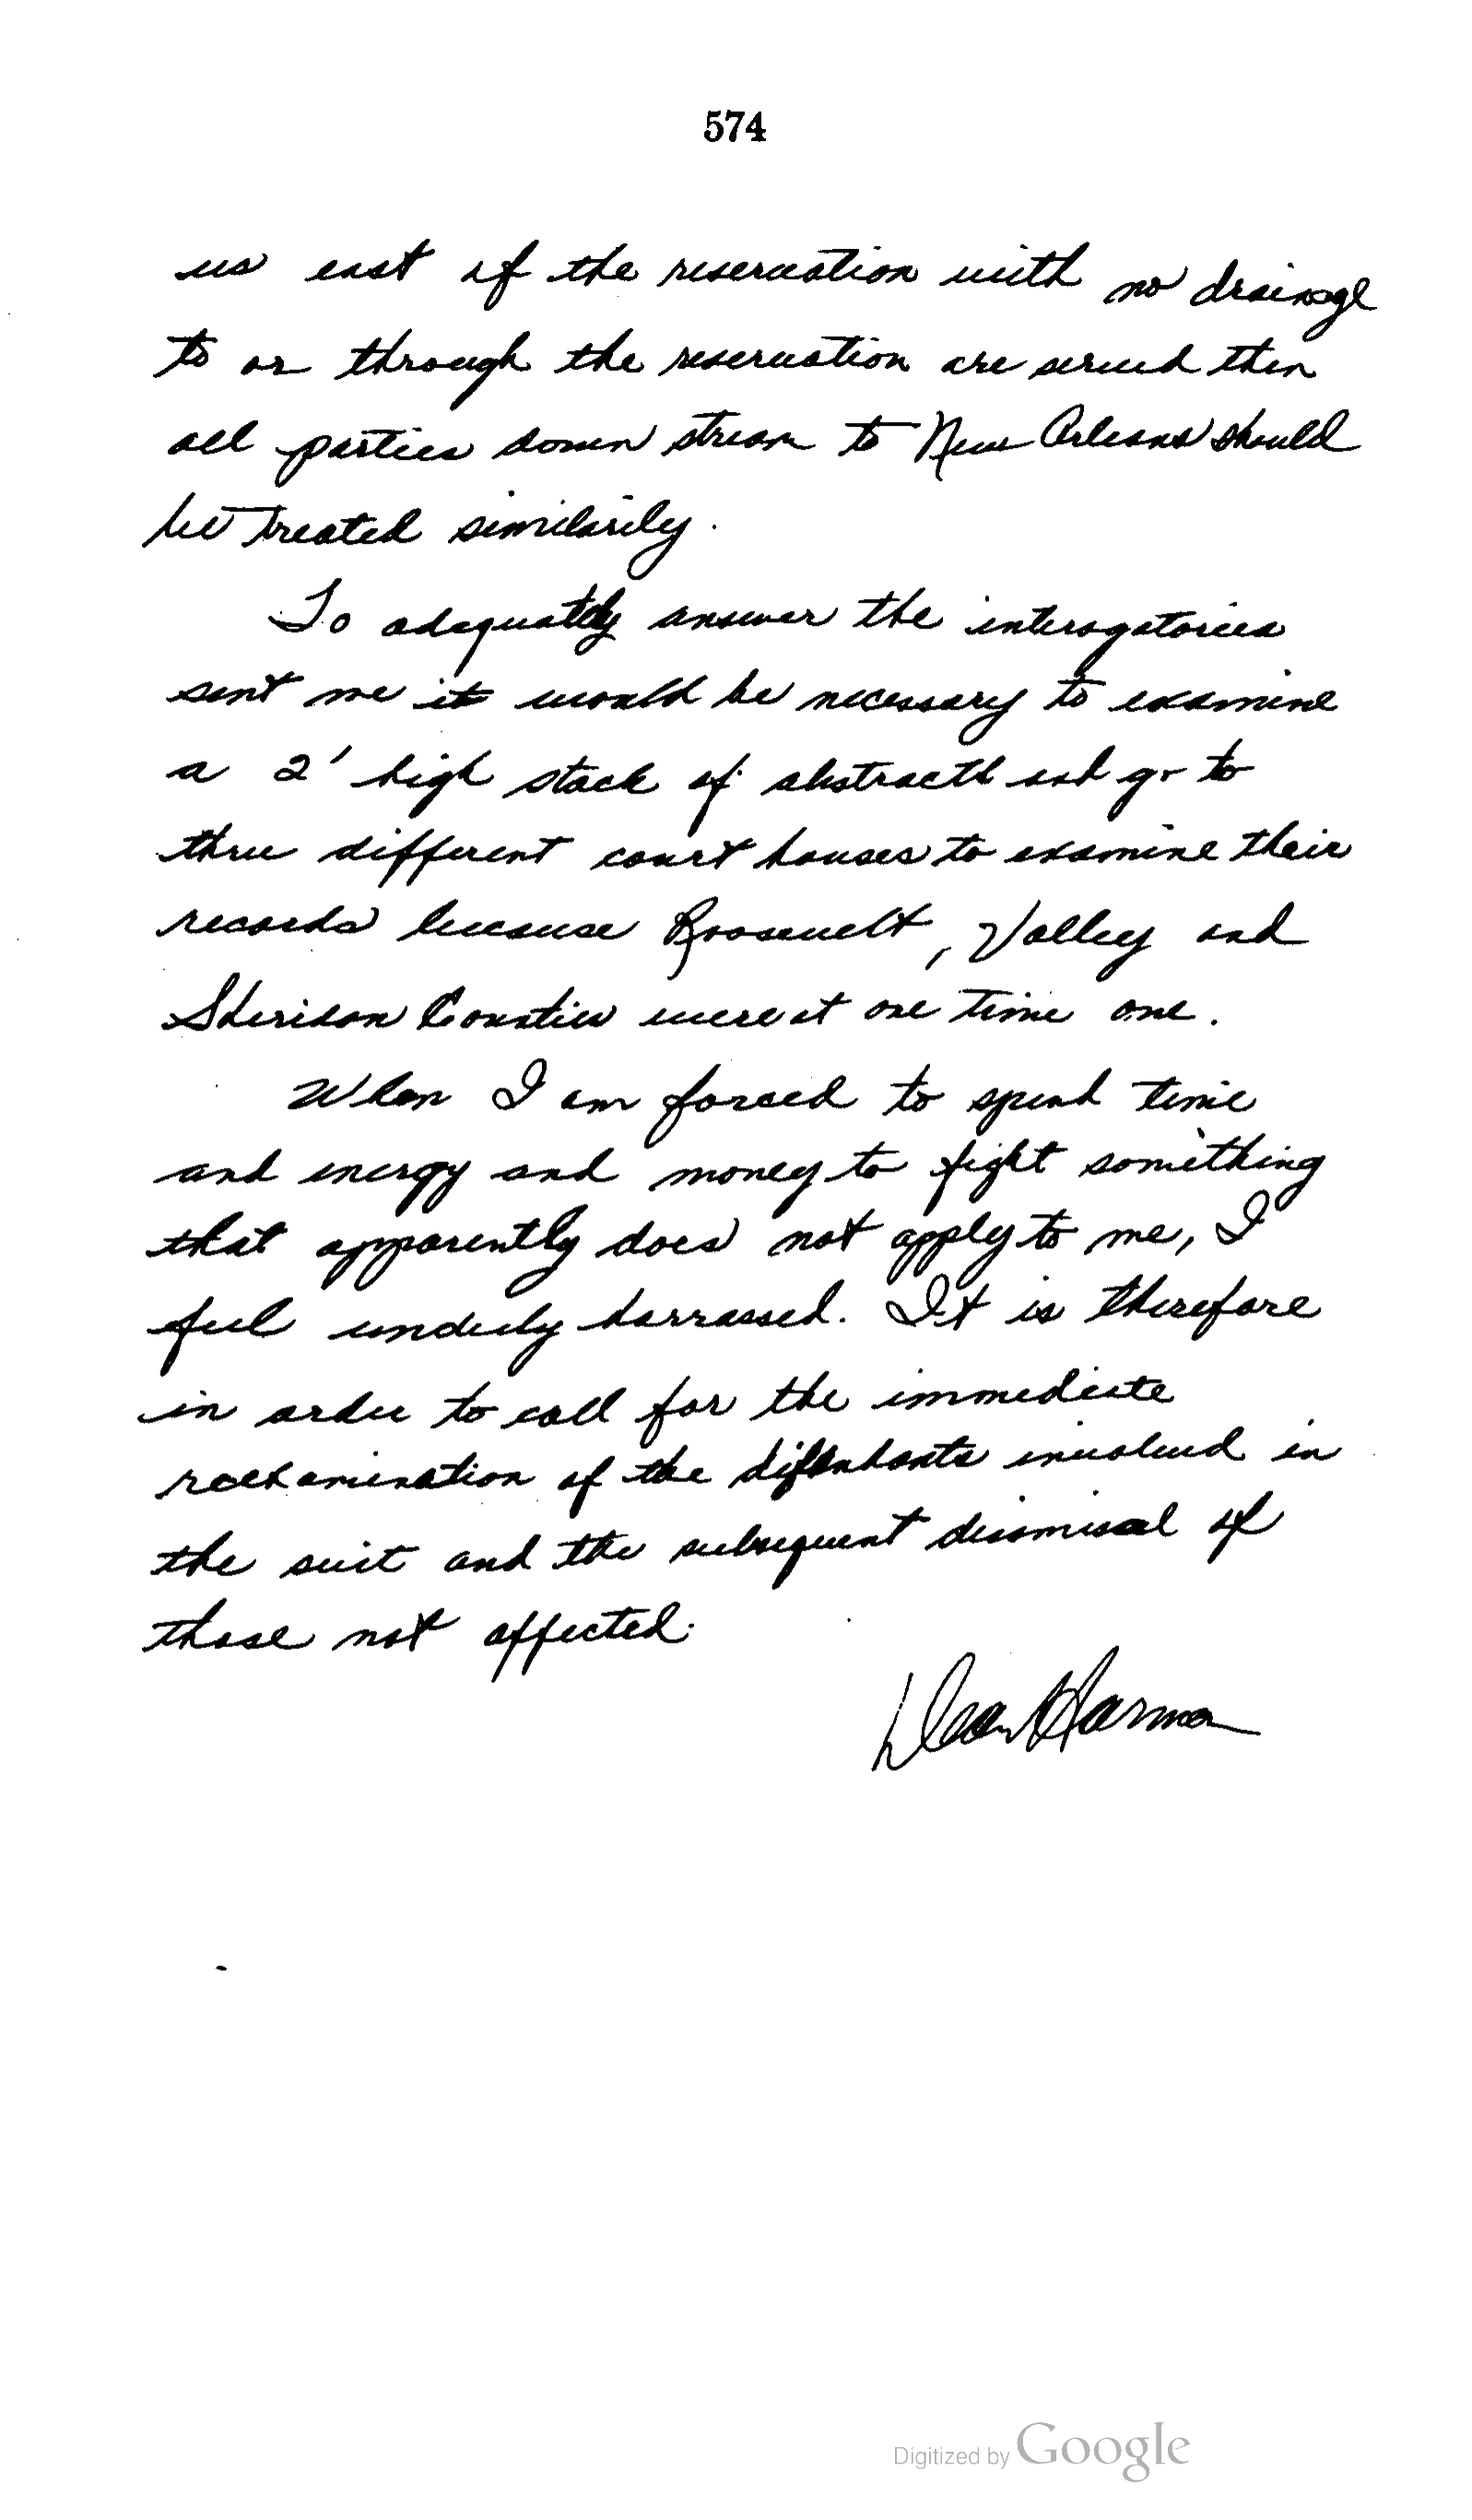 574
us east of the reservation with no drainage
to or through the reservation are served then
all parties down stream to New Orleans should
be treated similarily.
To adequately answer the interogatories
sent me it would be necessary to examine
a 2' high stack of abstracts and go to
three different court houses to examine their
records because Roosevelt, Valley and
Sheridan Counties were at one time one.
When I am forced to spend time
and energy and money to fight something
that apparently does not apply to me, I
feel unduly harrassed. It is therefore
in order to call for the immediate
reexamination of the defendants involved in
the suit and the subsequent dismissal of
those not affected.
Dean Harmon
Digitized by Google